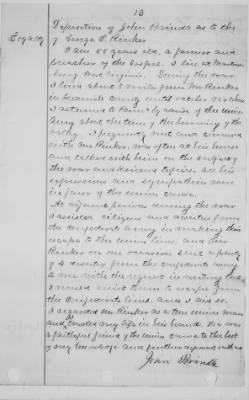 13
Deposition of John Brindle as to the
of George C. Rinker
I am 55 years old, a farmer and
preacher of the Gospel. I live at
West Virginia. During the war
I lived about 8 miles from Mr Rinker
in County until
I returned to
Army about the time of the beginning of the
I frequently met and conversed
with Mr Rinker, was often at his house
and talked with him on the subject of
the war and kindred topics. All his
expressions and sympathies were
in favor of the Union cause.
At different periods during the war
I assisted citizens and deserters from
the Confederate army in making their
escape to the Union lines, and Mr
Rinker on one occasion sent a party
of 4 deserters from the Confederate army
to me with the request in writing that
I would assist them to escape from
the Confederate lines. And I did so.
I regarded Mr Rinker as a true Union man
and trusted my life in his hands. He was
a faithful friend of the Union cause to the best
of my knowledge and further deponent saith not
John Brindle